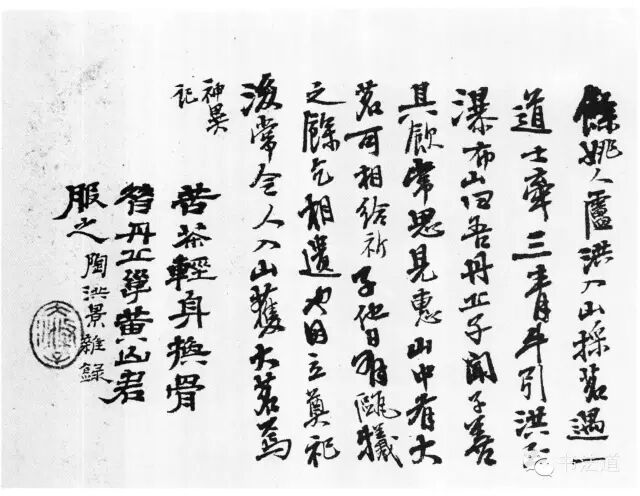 餘姚人盧洪入山採茗遇一
道士牽三青牛引洪至
瀑布山曰吾丹丘子聞子善
具飲常思見惠山中有大
茗可相給祈子他日有甌犧
之餘乞相遺也因立奠祀
後常令人入山獲大茗焉
神異
記
苦茶輕身換骨
昔丹丘黄山君
服之陶洪景雜録
书法道